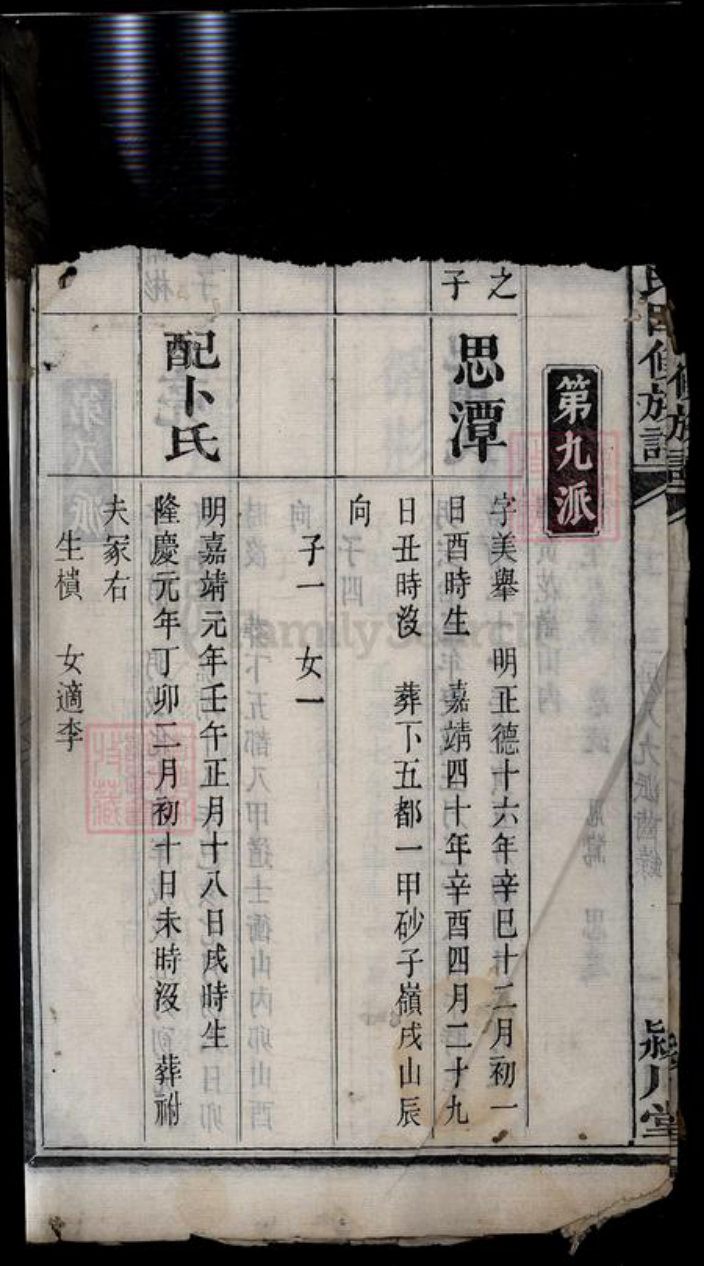 氏四修族譜
潁川堂
第九派
之
子
思潭
字美舉 明正德十六年辛巳十二月初一
日酉時生 嘉靖四十年辛酉四月二十九
日丑時沒 葬下五都一甲砂子嶺戌山辰
向
子一 女一
配卜氏
明嘉靖元年壬午正月十八日戌時生
隆慶元年丁卯二月初十日未時沒 葬祔
夫冢右
生樻 女適李
FamilySearch